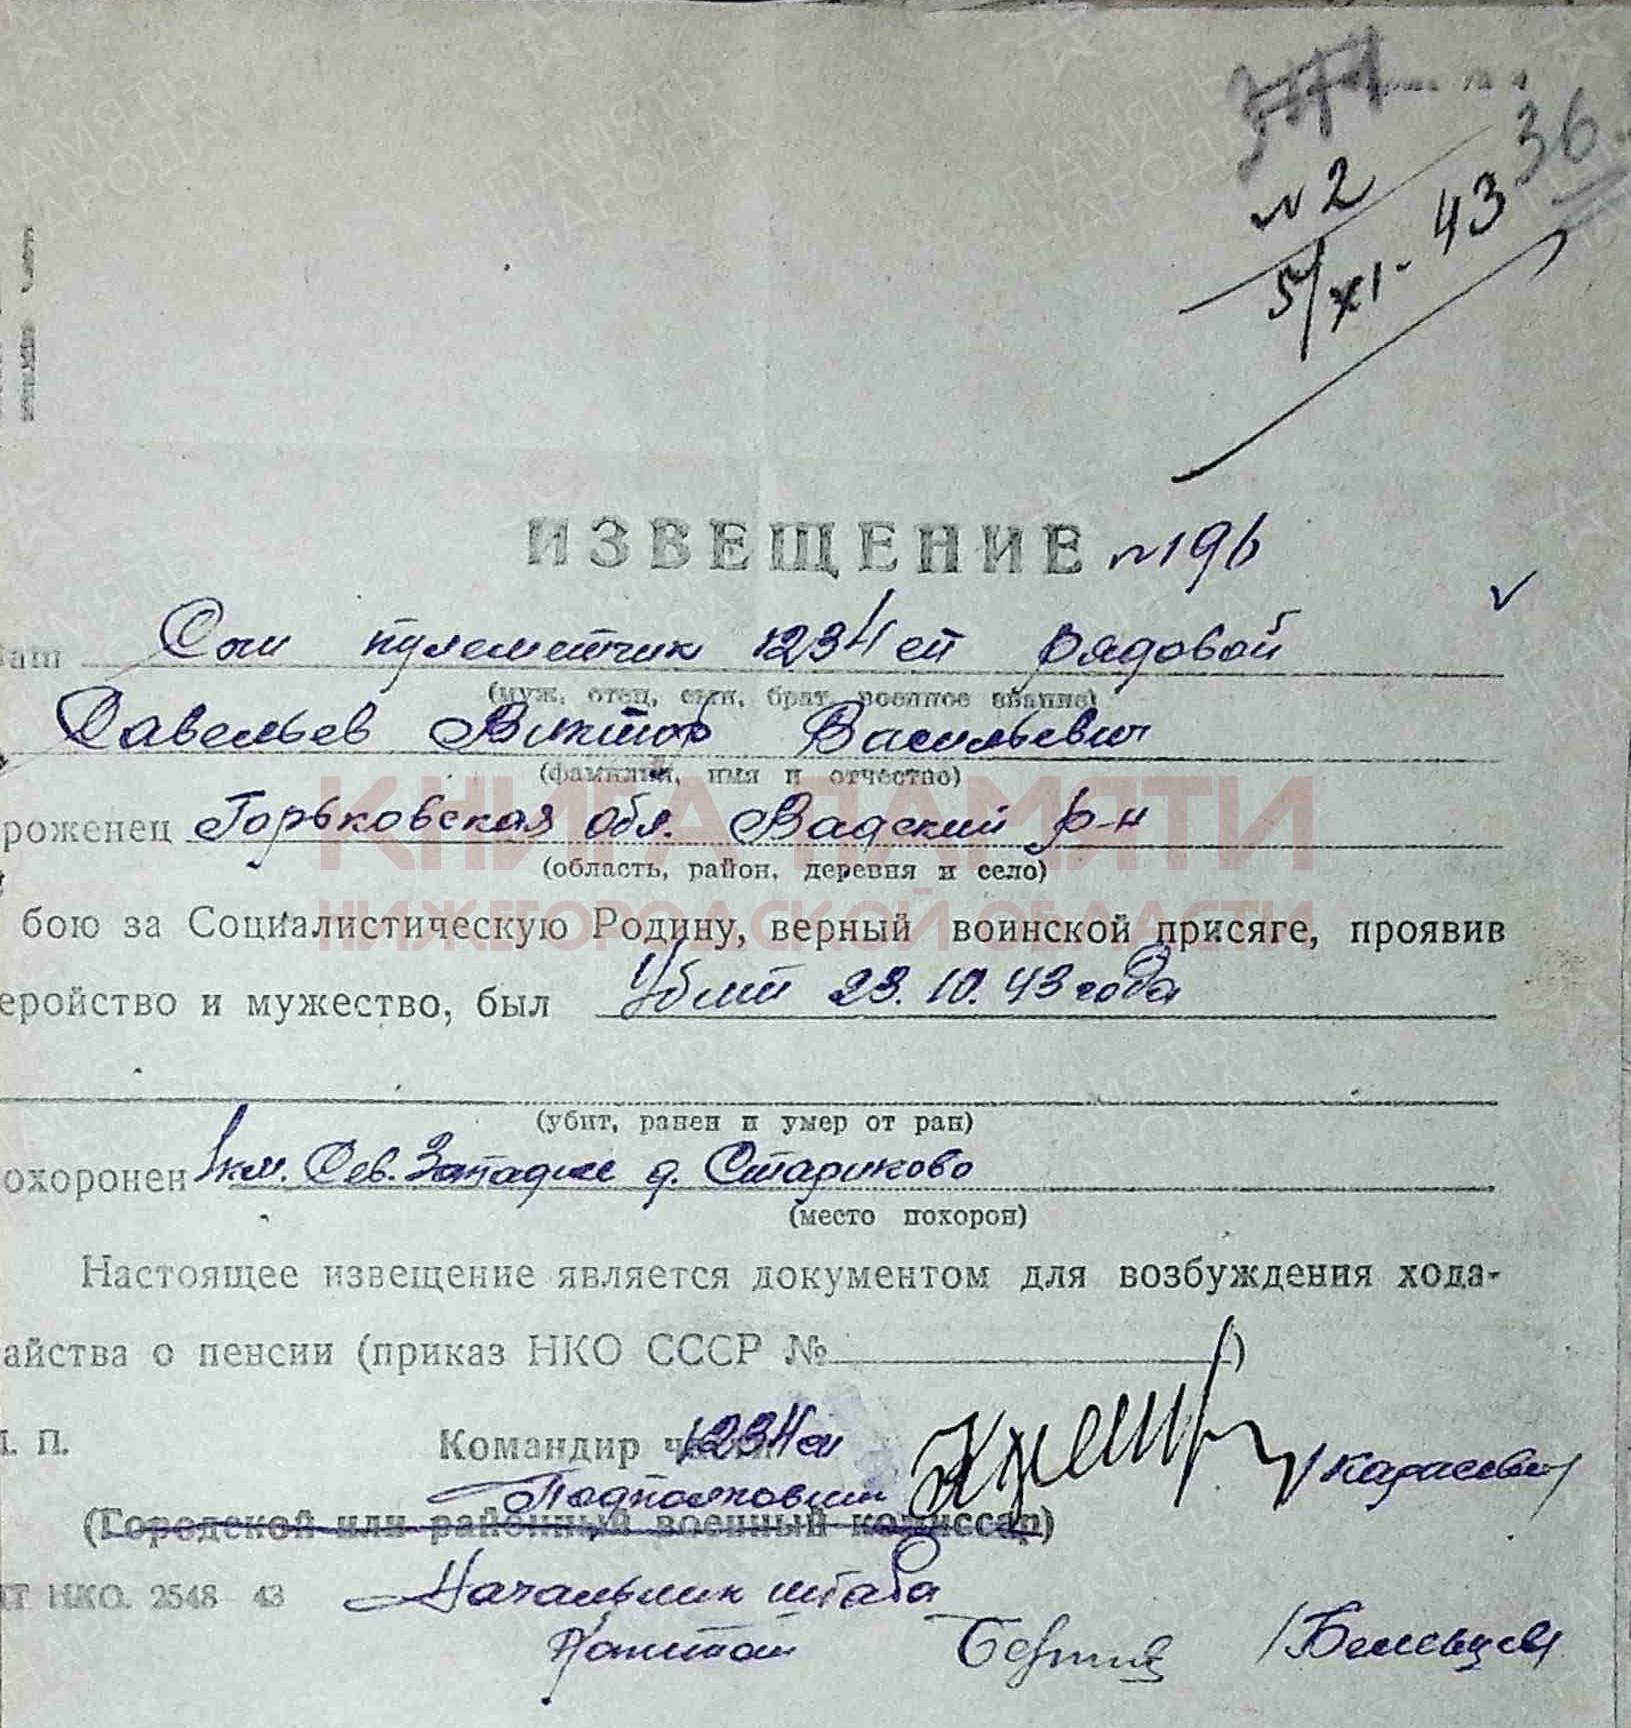 36
№2
5/XI-43
ИЗВЕЩЕНИЕ №196
Ваш Сын пулеметчик 1234 сп рядовой
(муж, отец, сын, брат, военное звание)
Савельев Виктор Васильевич
(фамилия, имя и отчество)
роженец Горьковская обл. Вадский р-н
(область, район, деревня и село)
КНИГА ПАМЯТИ
НИЖЕГОРОДСКОЙ ОБЛАСТИ
бою за Социалистическую Родину, верный воинской присяге, проявив
еройство и мужество, был Убит 23.10.43 года
(убит, ранен и умер от ран)
охоронен 1 км. Сев. Западнее д. Стариково
(место похорон)
Настоящее извещение является документом для возбуждения хода-
айства о пенсии (приказ НКО СССР №)
П. Командир 1234 сп
Подполковник /Карасевич/
(Городской или районный военный комиссар)
НКО. 2548—43 Начальник штаба
Капитан
ПАМЯТЬ НАРОДА